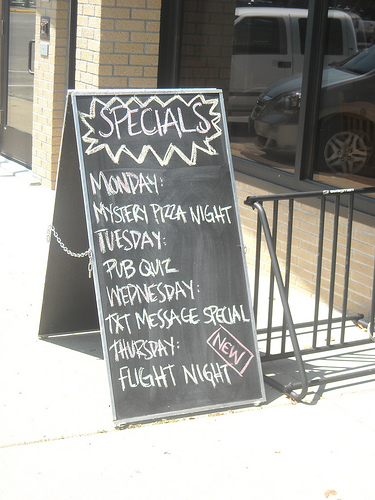 SPECIALS
MONDAY:
MYSTERY PIZZA NIGHT
TUESDAY:
PUB QUIZ
WEDNESDAY:
TXT MESSAGE SPECIAL
THURSDAY:
NEW
FLIGHT NIGHT